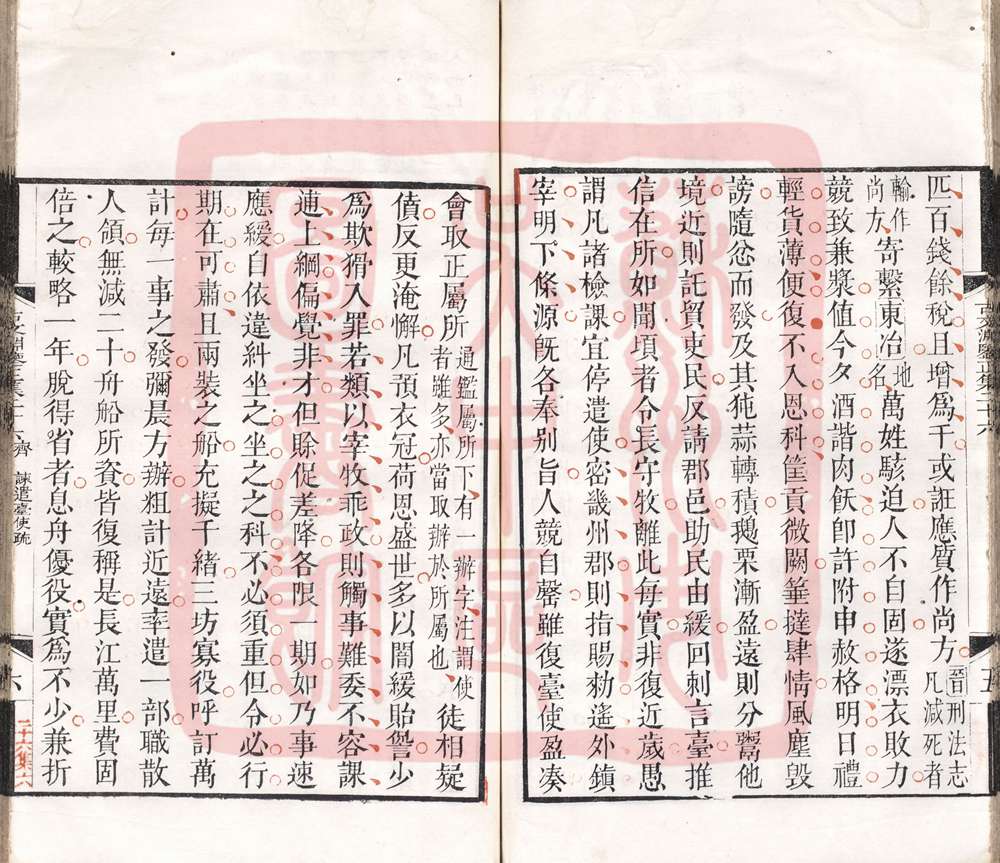 匹百錢餘稅且增爲千或誑應質作尚方晉刑法志凡減死者
輸作尚方寄繫東冶地名萬姓駭迫人不自固遂漂衣敗力
競致兼漿值今夕酒諧肉飫卽許附申赦格明日禮
輕貨薄便復不入恩科筐貢微闕箠撻肆情風塵毀
謗隨忿而發及其㹠蒜轉積鵝栗漸盈遠則分鬻他
境近則託貿吏民反請郡邑助民由緩回刺言臺推
信在所如聞頃者令長守牧離此每實非復近歲愚
謂凡諸檢課宜停遣使密畿州郡則指賜勑遙外鎭
宰明下條源旣各奉别旨人競自罄雖復臺使盈湊
會取正屬所通鑑屬所下有一辦字注謂使者雖多亦當取辦於所屬也徒相疑
僨反更淹懈凡預衣冠荷恩盛世多以闇緩貽諐少
爲欺猾入罪若類以宰牧乖政則觸事難委不容課
逋上綱偏覺非才但賒促差降各限一期如乃事速
應緩自依違糾坐之坐之之科不必須重但令必行
期在可肅且兩裝之船充擬千緒三坊寡役呼訂萬
計每一事之發彌晨方辦粗計近遠率遣一部職散
人領無減二十舟船所資皆復稱是長江萬里費固
倍之較略一年脫得省者息舟優役實爲不少兼折
齊 諫遣臺使疏
六
二十六集六